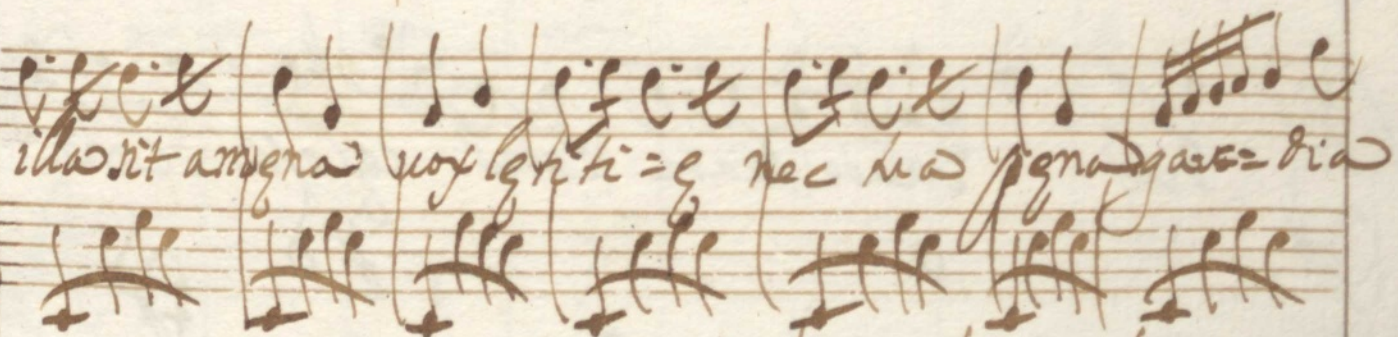 illa sit amęna uox lętiti=ę nec sua pęna gau=dia